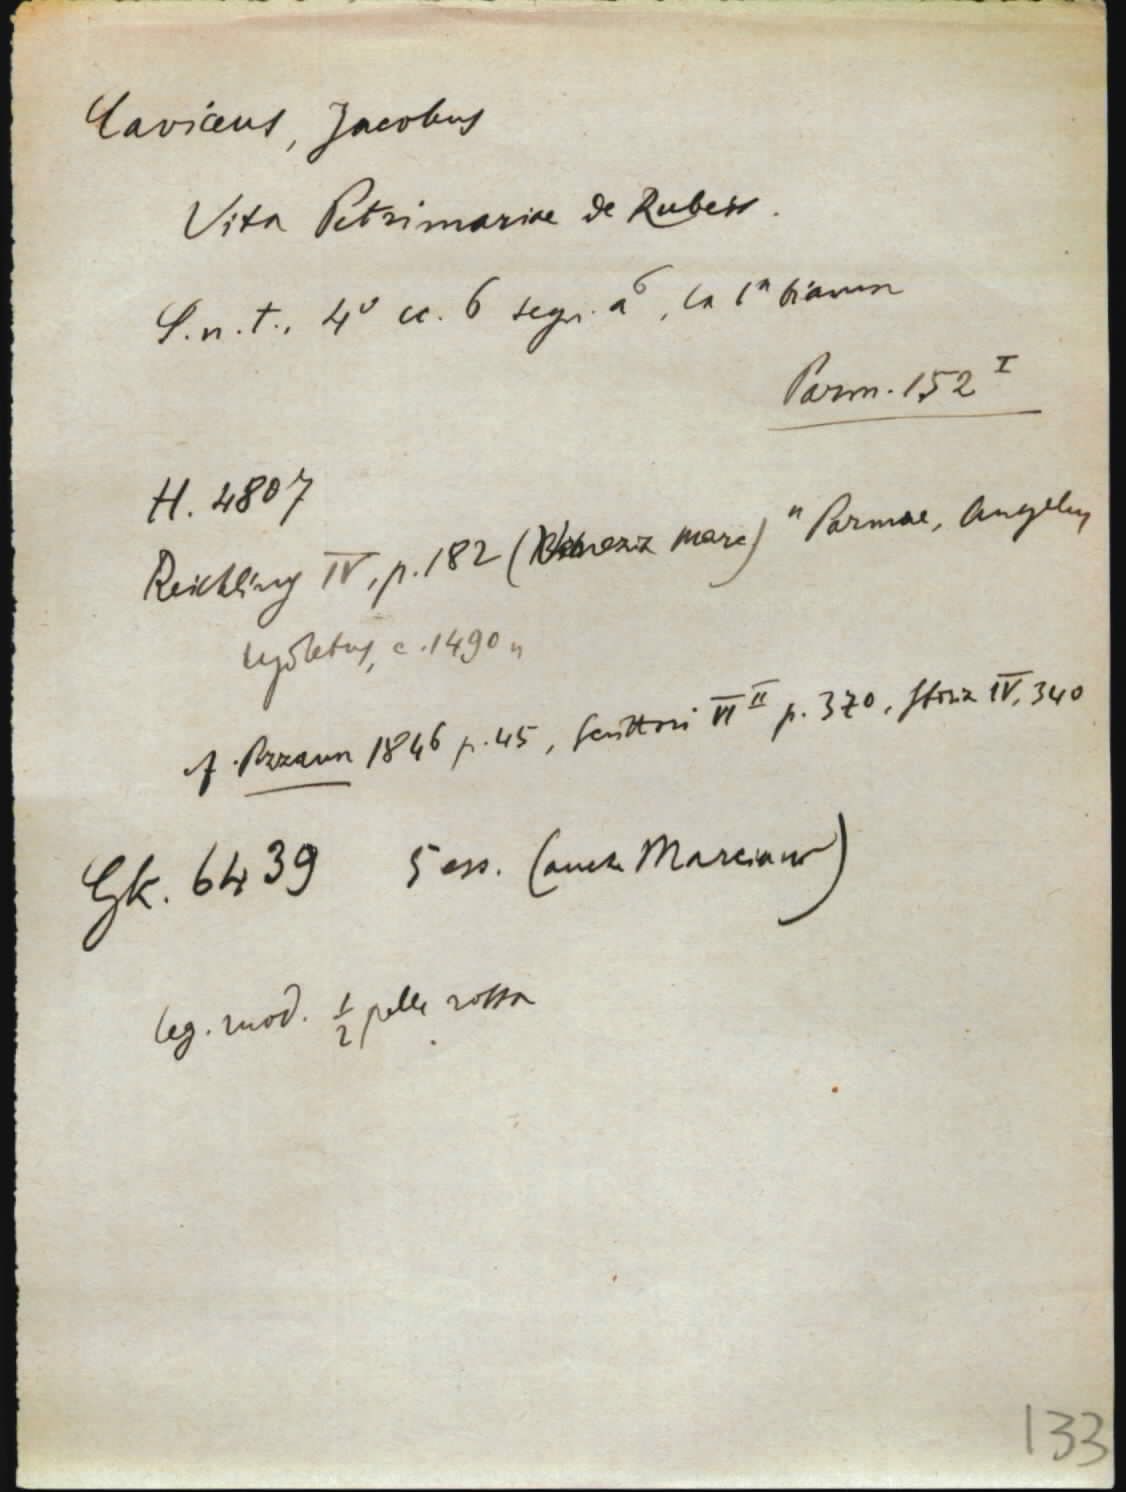 Caviceus, Jacobus
Vita Petrimariae de Rubeis.
S.n.t., 4° cc. 6 segn. a⁶, la 1ª bianca
Parm. 152 I
H. 4807
Reichling IV, p. 182 (Venezia Marc) "Parmae, Angelus
Ugoletus, c. 1490"
cf. Pezzana 1846 p. 45, Scrittori VI II p. 370, Storia IV, 340
Gk. 6439 5 es. (anche Marciana)
leg. mod. ½ pelle rossa
133